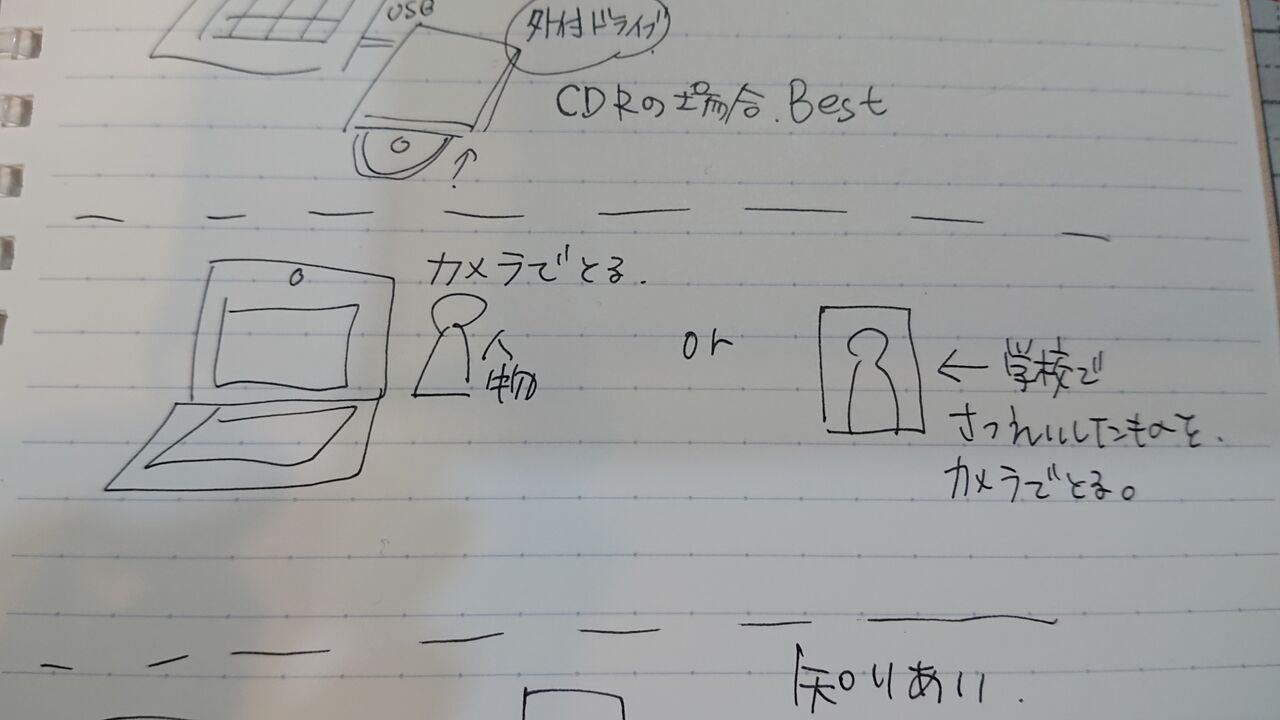 USB
外付ドライブ
CDRの場合.Best
カメラでとる.
人物
or
← 学校で
さつえいしたものを.
カメラでとる。
知りあい.